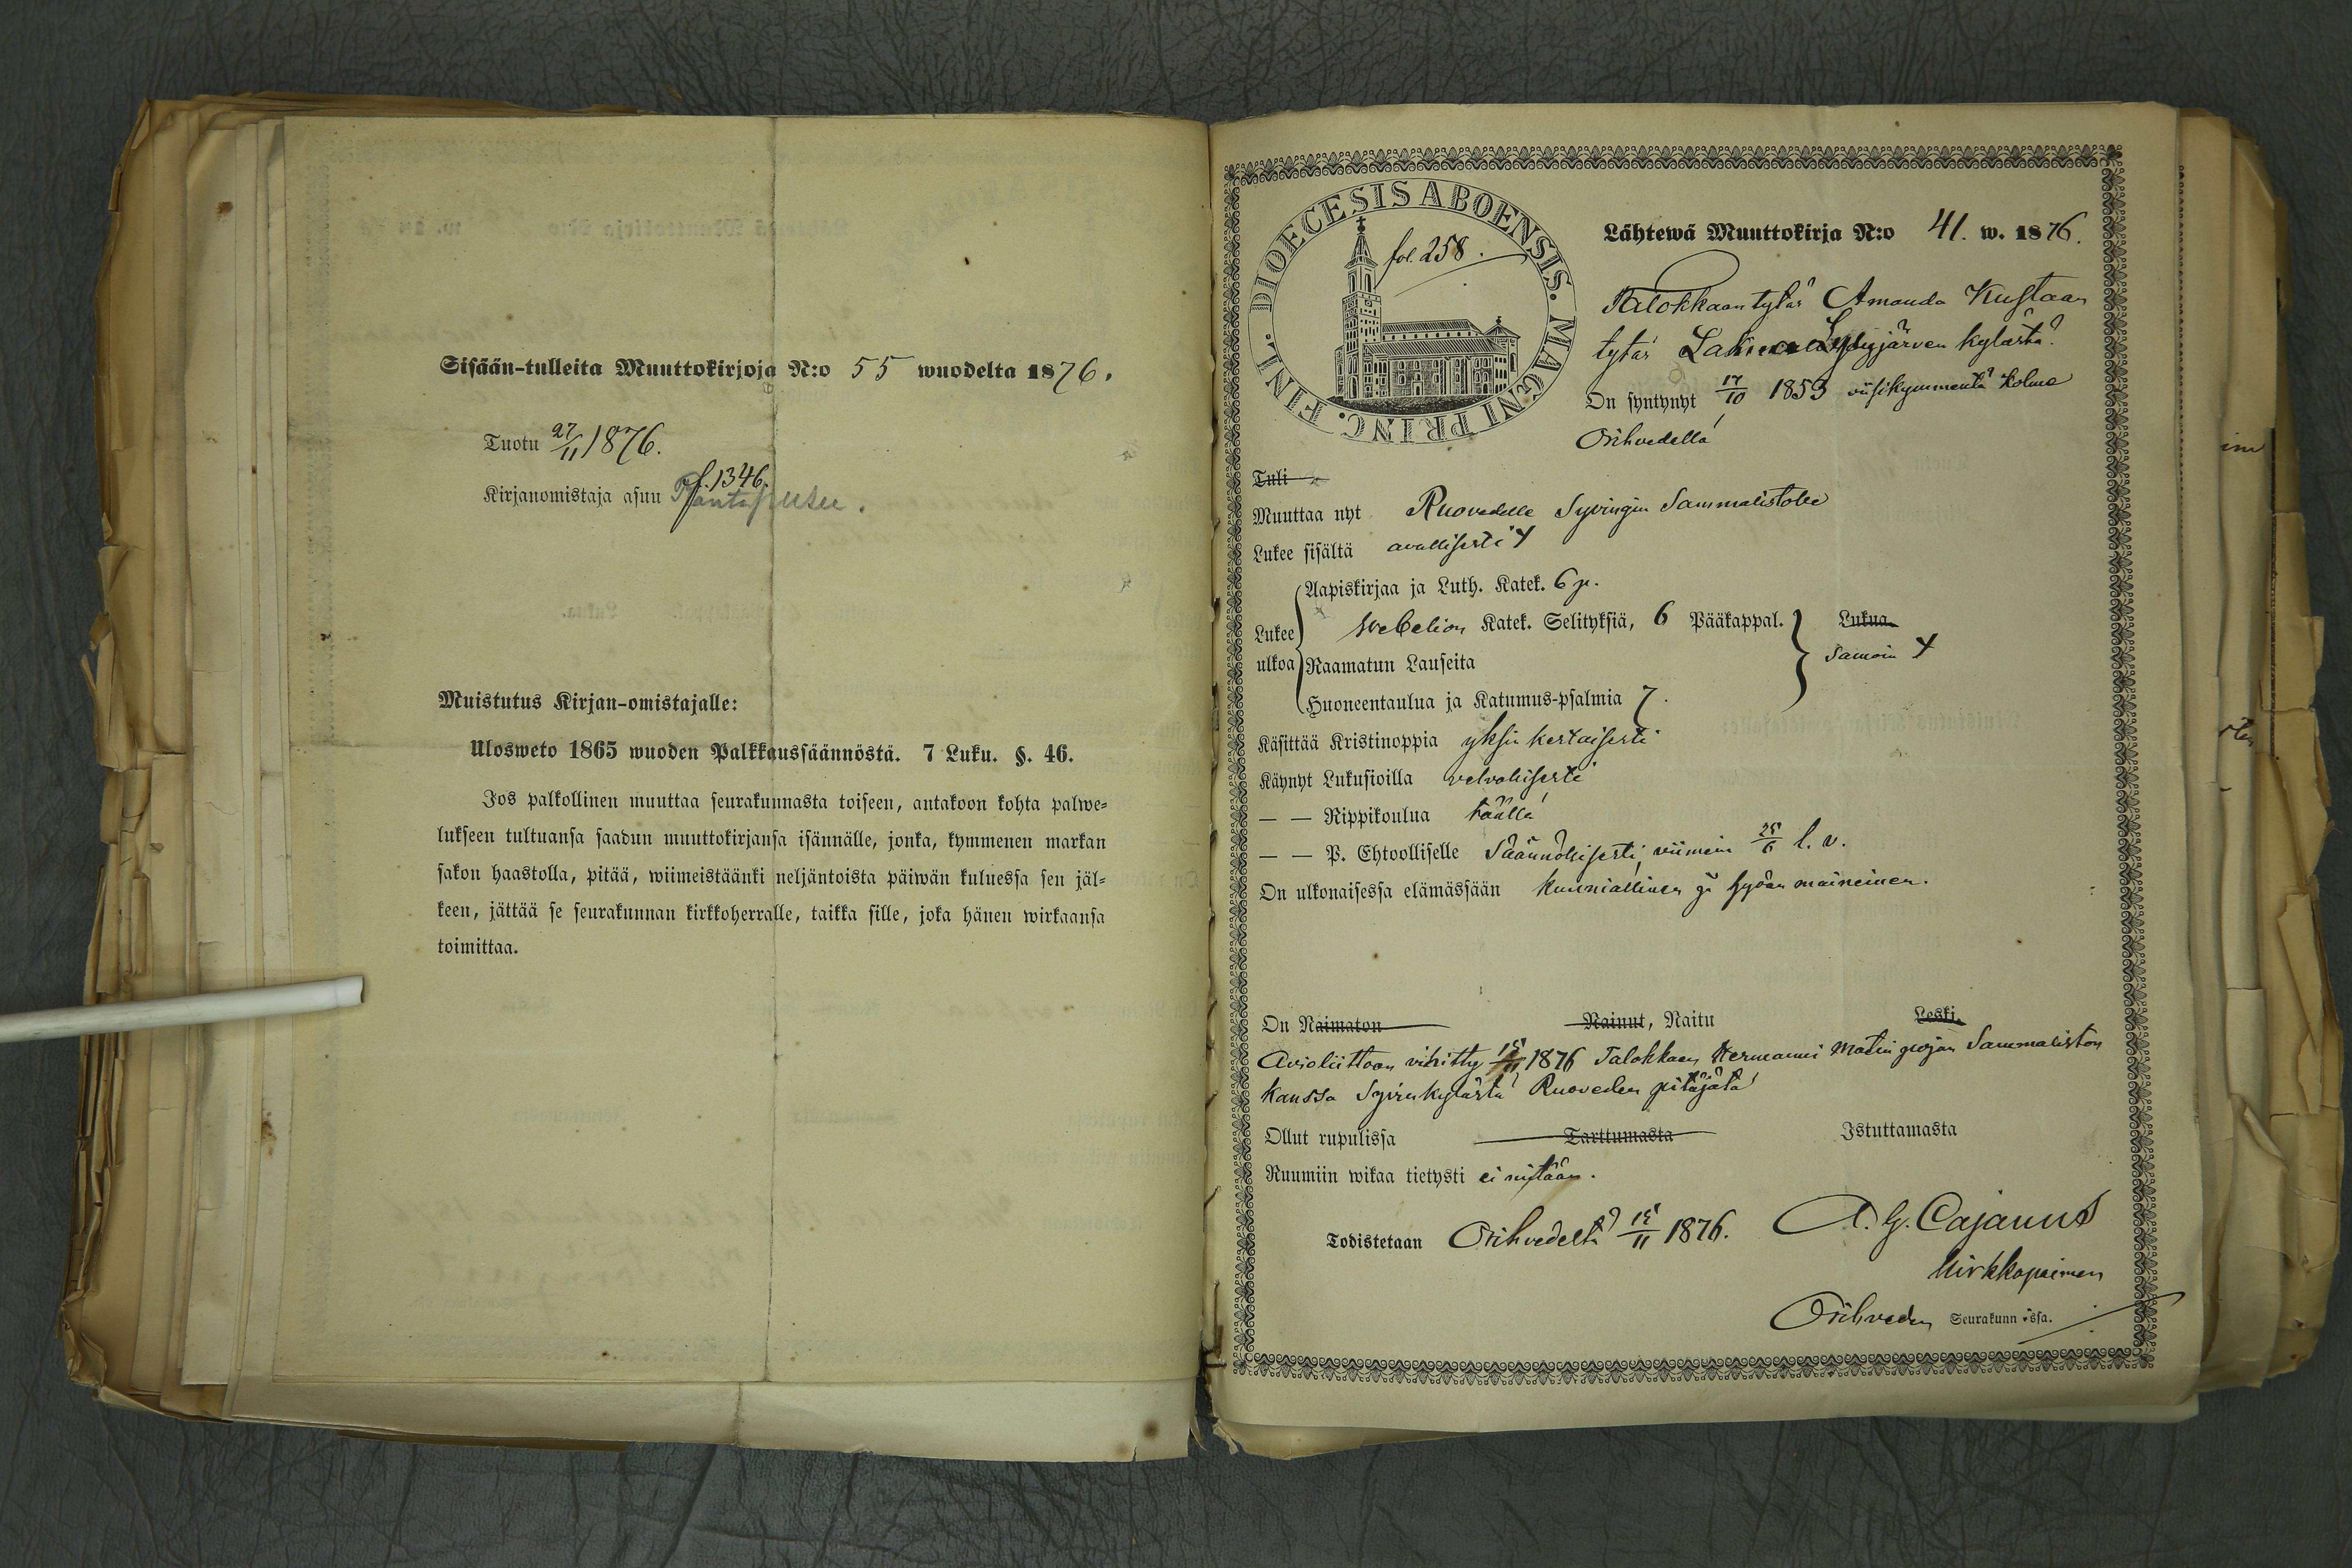 Sisään-tulleita Muuttokirjoja N:o 55 wuodelta 1876.
Tuotu 27/11 1876.
f. 1346.
Kirjanomistaja asuu
Muistutus Kirjan-omistajalle:
Ulosweto 1865 wuoden Palkkaussäännöstä. 7 Luku. §. 46.
Jos palkollinen muuttaa seurakunnasta toiseen, antakoon kohta palwe-
lukseen tultuansa saadun muuttokirjansa isännälle, jonka, kymmenen markan
sakon haastolla, pitää, wiimeistäänki neljäntoista päiwän kuluessa sen jäl-
keen, jättää se seurakunnan kirkkoherralle, taikka sille, joka hänen wirkaansa
toimittaa.
DIOECESIS ABOENSIS. MAGNI PRINC. FINL.
fol. 258.
Lähtewä Muuttokirja N:o 41. w. 1876.
Talokkaantytär Amanda Kustaan
tytär kylästä
On syntynyt 17/10 1853 viisikymmentä kolme
Orihvedellä
Tuli
Muuttaa nyt Ruovedelle Syvingin Sammalistolle
Lukee sisältä avullisesti
Aapiskirjaa ja Luth. Katek. 6 p.
Lukee ulkoa Svebelion Katek. Selityksiä, 6 Pääkappal. Lukua.
Raamatun Lauseita Samoin
Huoneentaulua ja Katumus-psalmia 7.
Käsittää Kristinoppia yksinkertaisesti
Käynyt Lukusioilla velvollisesti
— — Rippikoulua täällä
— — P. Ehtoolliselle Säännöllisesti, viimein 25/6 l. v.
On ulkonaisessa elämässään kunniallinen ja hyvän maineinen.
On Naimaton Nainut, Naitu Leski.
Avioliittoon vihitty 15/11 1876 Talokkaan Hermanni Matin pojan Sammaliston
kanssa Syvinkylästä Ruoveden pitäjätä
Ollut rupulissa Tarttumasta Istuttamasta
Ruumiin wikaa tietysti ei mitään.
Todistetaan Orihvedeltä 15/11 1876. A. G. Cajanus
Kirkkopaimen
Orihveden Seurakunnissa.